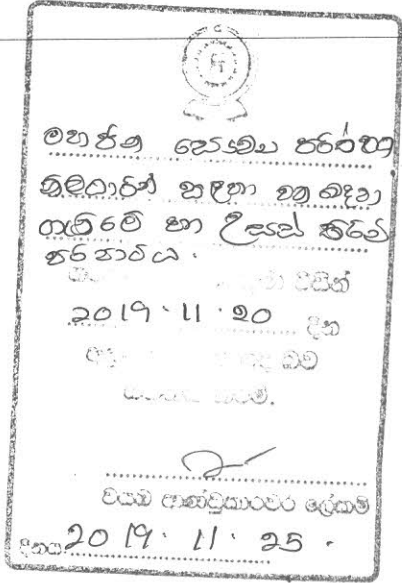 මහජන සෞඛ්‍ය පරීක්ෂණ
නිලධාරීන් සඳහා වන බඳවා
ගැනීමේ හා උසස් කිරීමේ
පරිපාටිය.
විසින්
2019.11.20 දින
බව
කරමි.
වයඹ ආණ්ඩුකාරවර ලේකම්
දිනය: 2019.11.25.